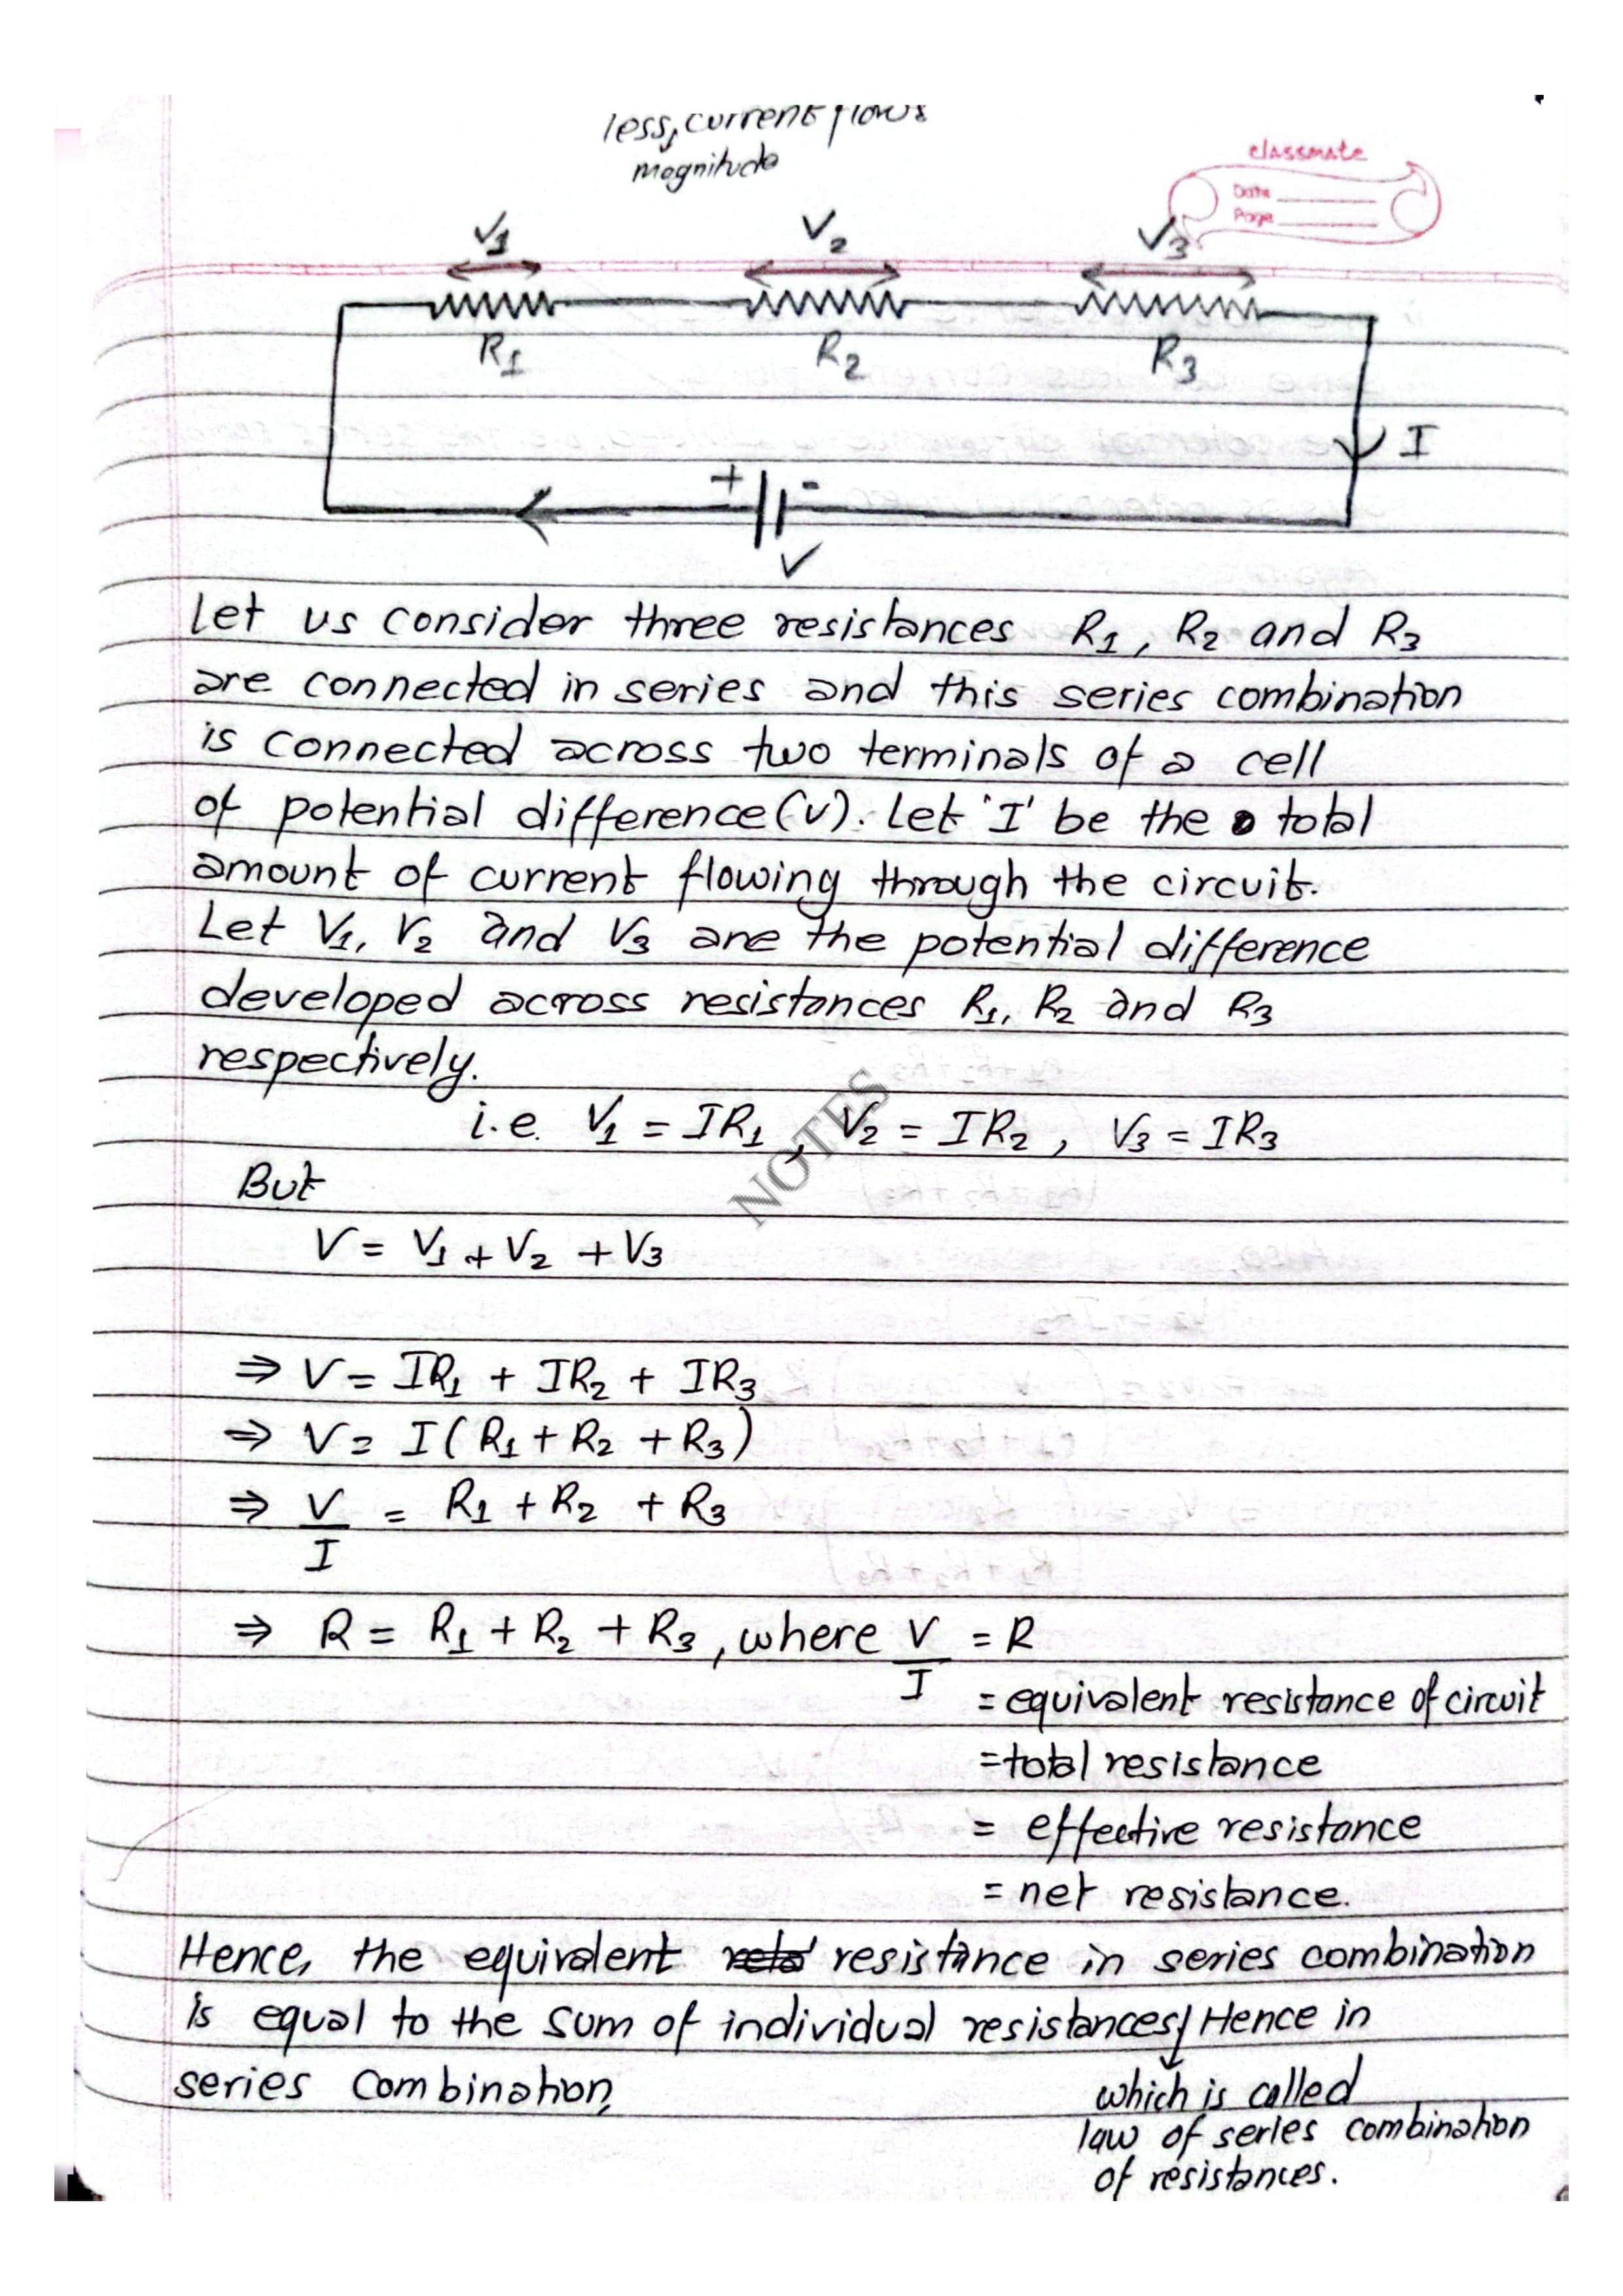 less, current flows
magnitude
classmate
Date
Page
V₁ V₂ V₃
R₁ R₂ R₃
I
+ -
V
Let us consider three resistances R₁, R₂ and R₃
are connected in series and this series combination
is connected across two terminals of a cell
of potential difference (V). Let 'I' be the total
amount of current flowing through the circuit.
Let V₁, V₂ and V₃ are the potential difference
developed across resistances R₁, R₂ and R₃
respectively.
i.e. V₁ = IR₁, V₂ = IR₂, V₃ = IR₃
NOTES
But
V = V₁ + V₂ + V₃
⇒ V = IR₁ + IR₂ + IR₃
⇒ V = I(R₁ + R₂ + R₃)
⇒ V/I = R₁ + R₂ + R₃
⇒ R = R₁ + R₂ + R₃, where V/I = R
= equivalent resistance of circuit
= total resistance
= effective resistance
= net resistance.
Hence, the equivalent resistance in series combination
is equal to the sum of individual resistances/ Hence in
series combination,
which is called
law of series combination
of resistances.